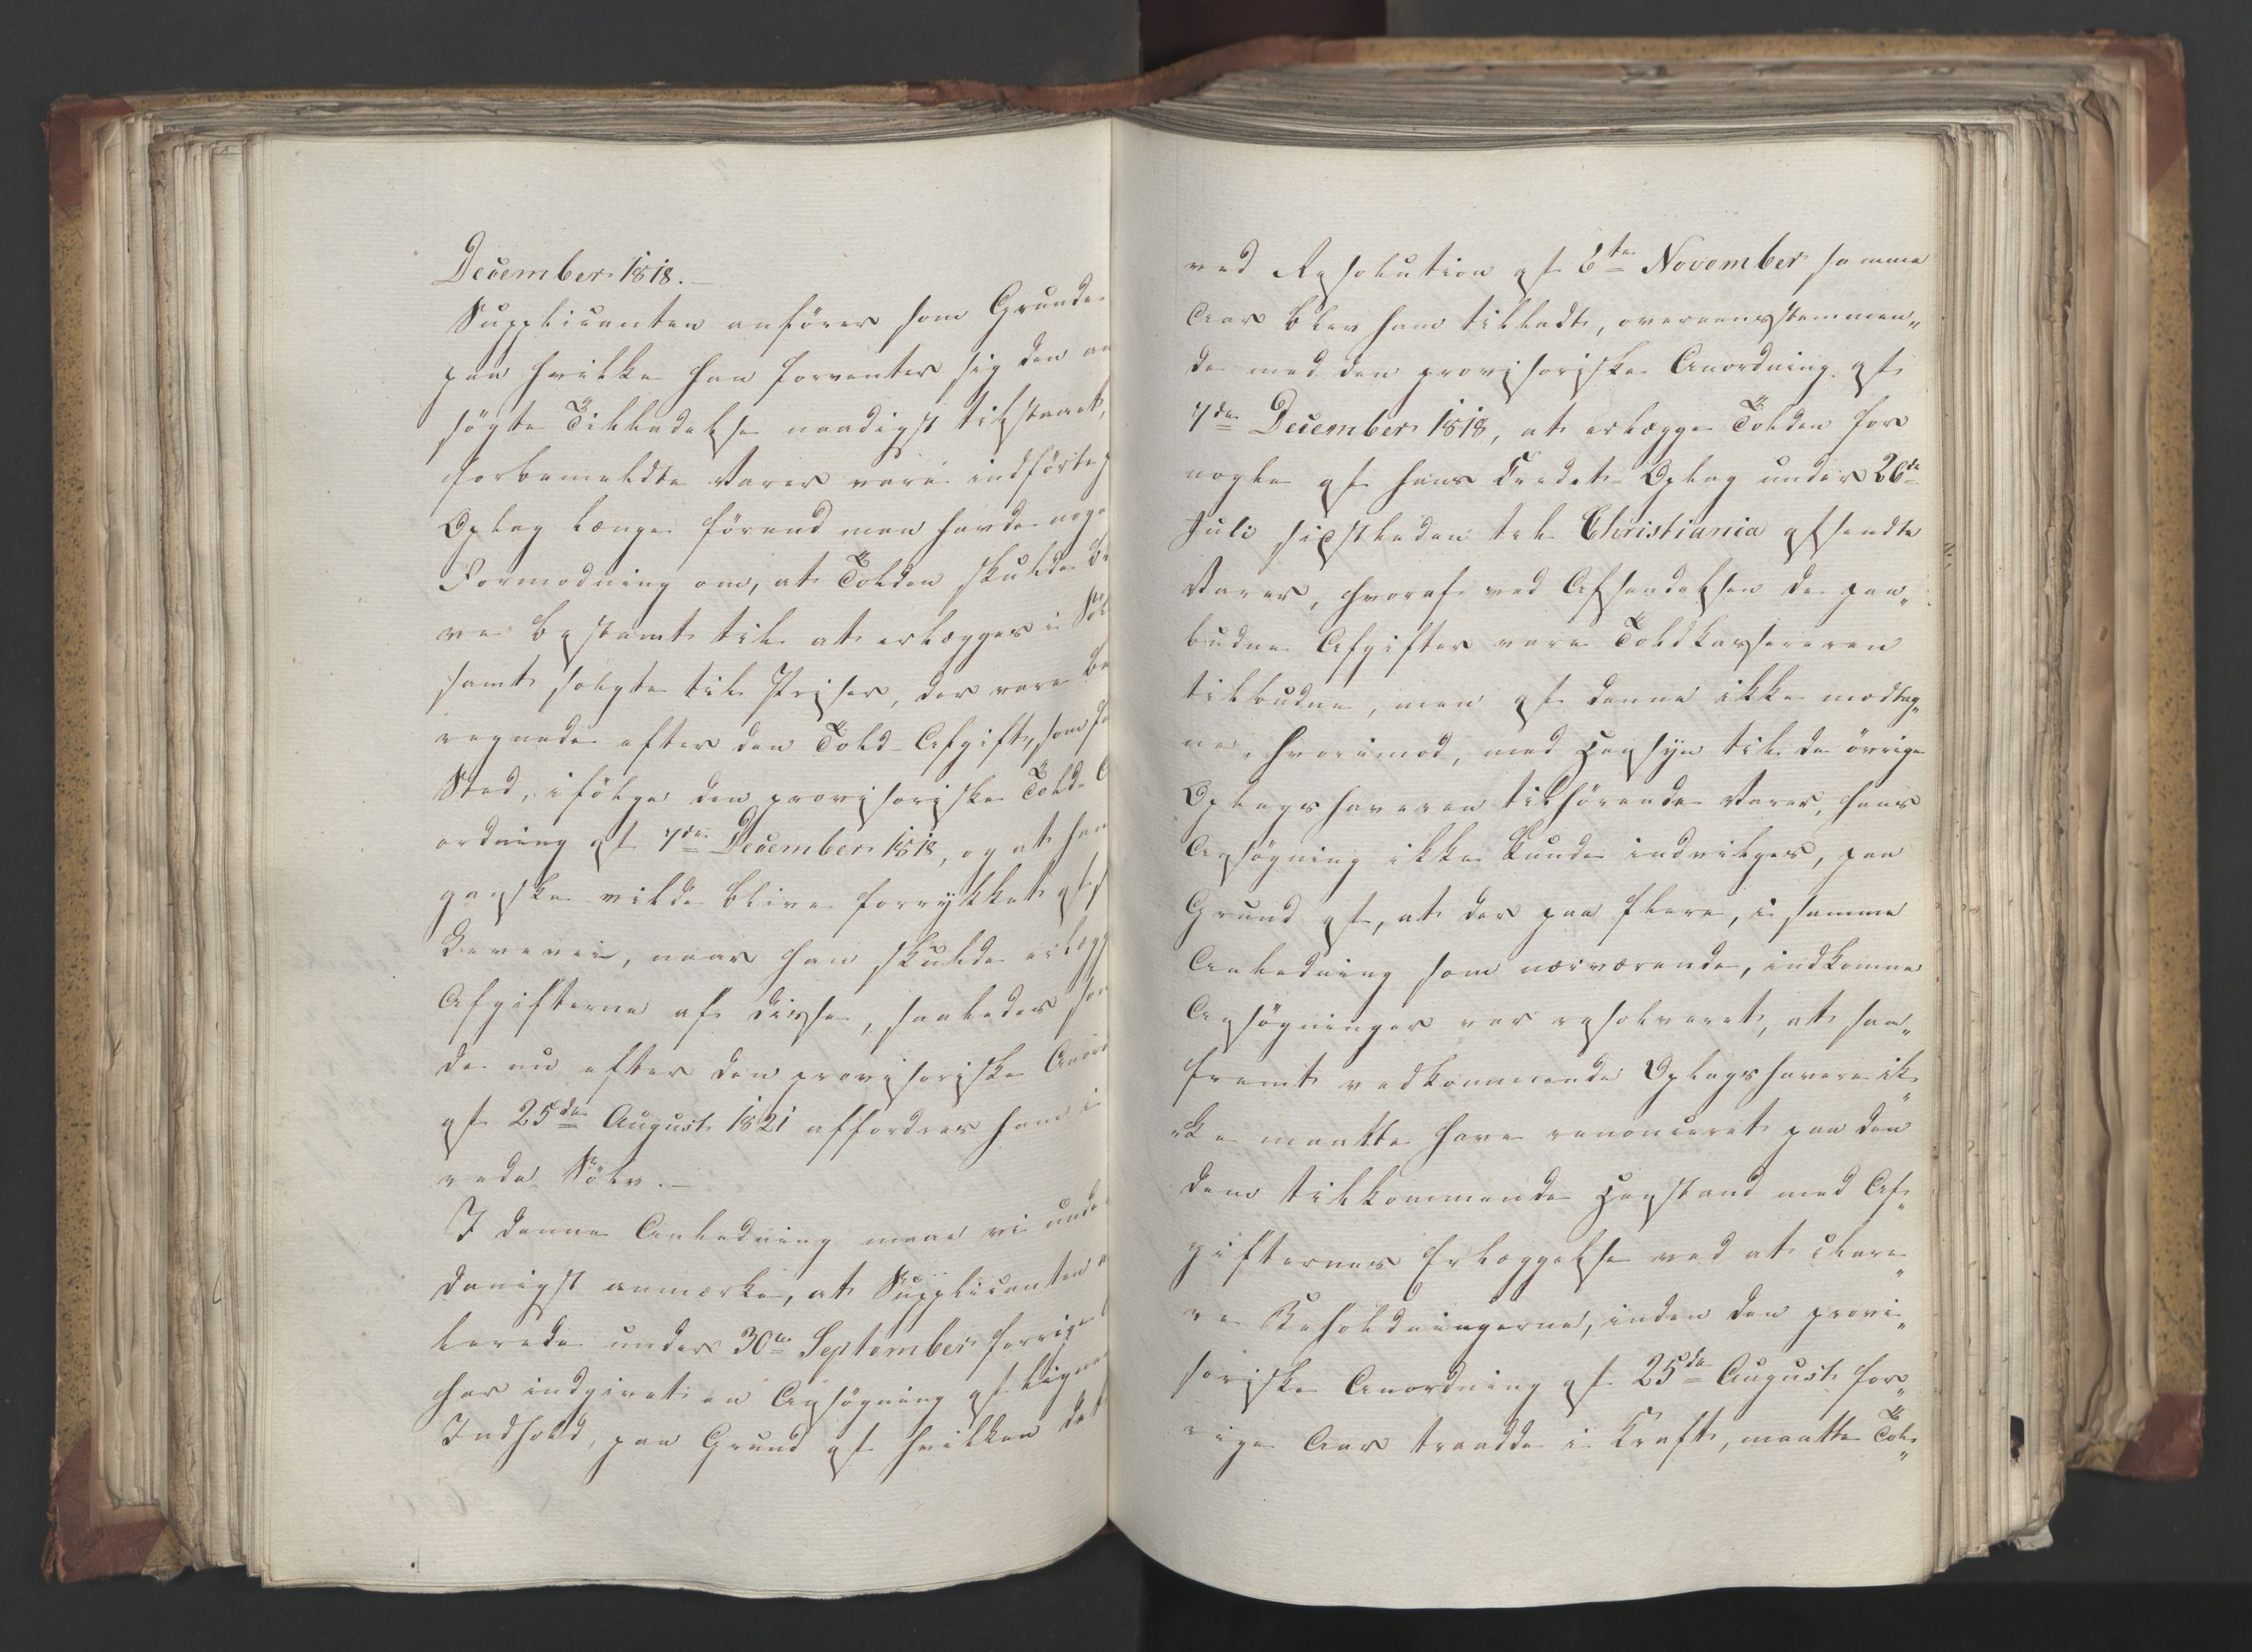 December 1818.–
Supplicanten anfører som Grunde
paa hvilke han forventer sig den an
søgte Tilladelse naadigst tilstaaet,
forbemeldte Varer vare indførte p
Oplag længe førend man havde noge
Formodning om, at Tolden skulde bl
ve bestemt til at erlægges i Søl
samt solgte til Priser, der vare be
regnede efter den Told-Afgift, som fa
Sted, ifølge den provisoriske Told-A
ordning af 7de December 1818, og at han
ganske vilde blive forrykket af s
Levevei, naar han skulde erlægg
Afgifterne af disse, saaledes som
de nu efter den provisoriske Anord
af 25de August 1821 affordres ham i
rede Sølv.–
I denne Anledning maae vi unde
danigst anmærke, at Supplicanten a
lerede under 30te September forrige
har indgivet en Ansøgning af lign
Indhold, paa Grund af hvilken det
ved Resolution af 6te November samme
Aar blev ham tilladt, overeensstemmen„
de med den provisoriske Anordning af
7de December 1818, at erlægge Tolden for
nogle af hans Credit-Oplag under 26de
Juli sidstleden til Christiania afsendte
Varer, hvoraf ved Afsendelsen de paa„
budne Afgifter vare Toldkassereren
tilbudne, men af denne ikke modtag„
ne, hvorimod, med Hensyn til de øvrige
Oplagshaveren tilhørende Varer, hans
Ansøgning ikke kunde indvilges, paa
Grund af, at der paa flere, i samme
Anledning som nærværende, indkomne
Ansøgninger var resolveret, at saa„
fremt vedkommende Oplagshavere ik„
„ke maatte have renonceret paa den
dem tilkommende Henstand med Af„
gifternes Erlæggelse ved at clare„
re Beholdningerne, inden den provi„
soriske Anordning af 25de August for„
rige Aar traadde i Kraft, maatte Tol„